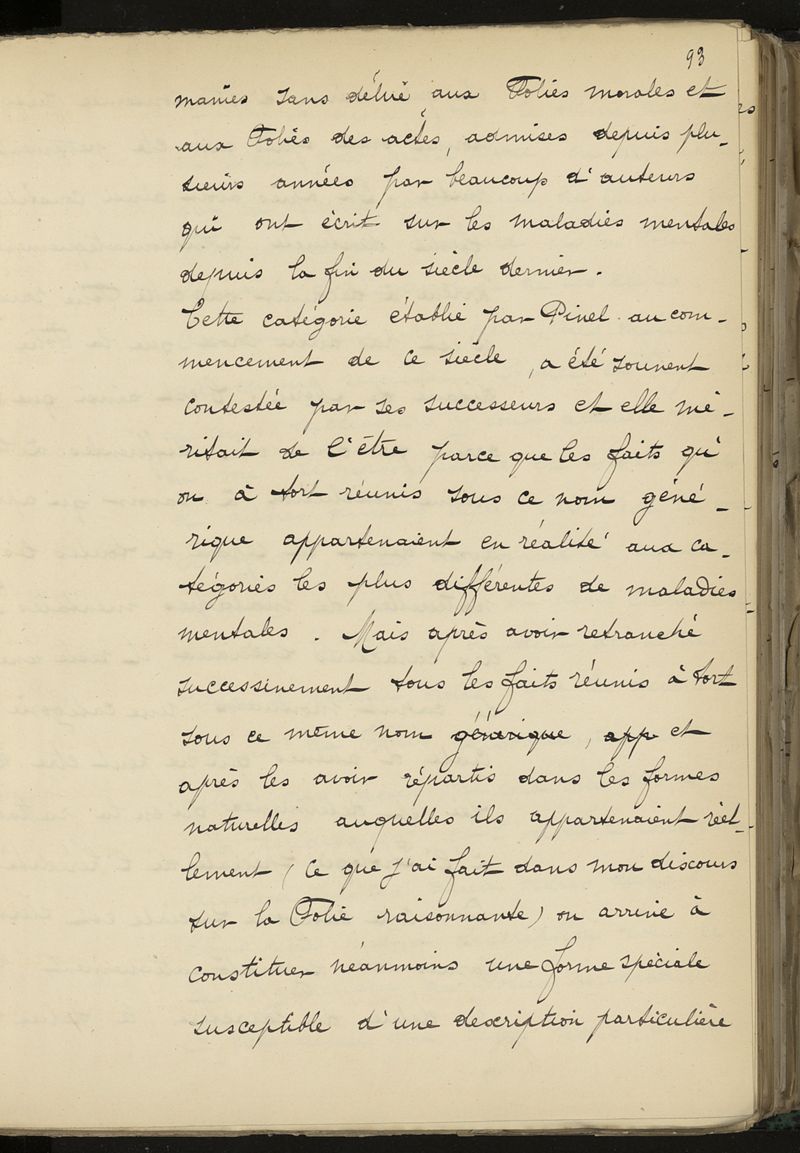 93
manies sans délire aux Folies morales et
aux Folies des actes, admises depuis plu-
sieurs années par beaucoup d'auteurs
qui ont écrit sur les maladies mentales
depuis la fin du siècle dernier.
Cette catégorie établie par Pinel au com-
mencement de ce siècle, a été souvent
contestée par ses successeurs et elle mé-
ritait de l'être parce que les faits qu'
on à tort réunis sous ce nom géné-
rique appartenaient en réalité aux ca-
tégories les plus différentes de maladies
mentales. Mais après avoir retranché
successivement tous les faits réunis à tort
sous ce même nom générique, app et
après les avoir répartis dans les formes
naturelles auquelles ils appartenaient réel-
lement (ce que j'ai fait dans mon discours
sur la Folie raisonnante) on arrive à
constituer néanmoins une forme spéciale
susceptible d'une description particulière